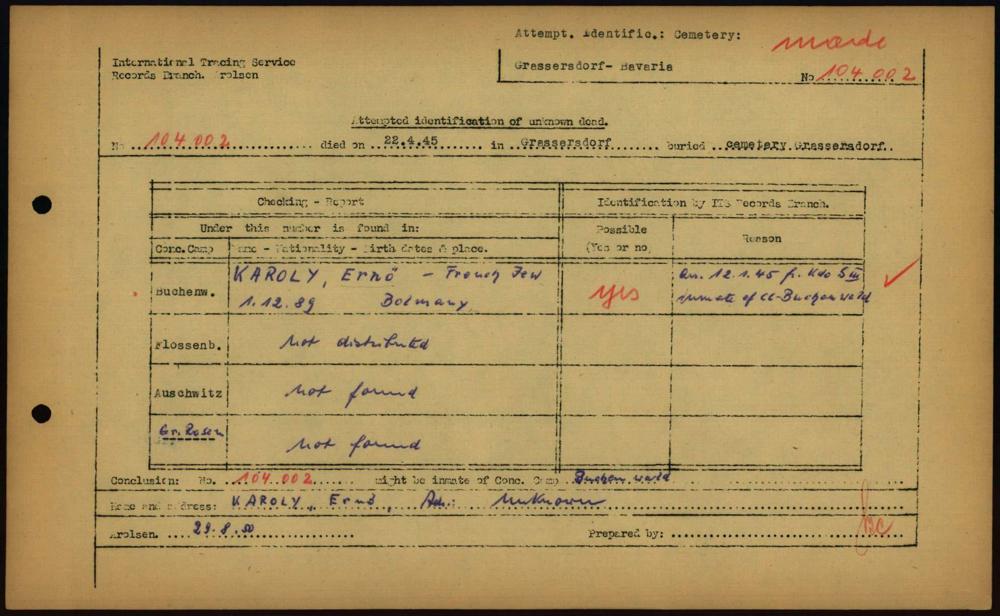 Attempt. Identific.: Cemetery:
made
International Tracing Service
Records Branch. Arolsen
Grassersdorf- Bavaria
No 104.002
Attempted identification of unknown dead.
No 104.002 died on 22.4.45 in Grassersdorf buried cemetery Grassersdorf.
Checking - Report
Identification by ITS Records Branch.
Under this number is found in:
Possible (Yes or no)
Reason
Conc.Camp
Name - Nationality - Birth dates & place.
Buchenw.
KAROLY, Ernö - French Jew
1.12.89 Bodmany
yes
on 12.1.45 f. Kdo S III
inmate of CC-Buchenwald
Flossenb.
Not distributed
Auschwitz
Not found
Gr. Rosen
Not found
Conclusion: No. 104.002 might be inmate of Conc. Camp Buchenwald
Name and address: KAROLY, Ernö, Adr.: Unknown
Arolsen. 29.8.50 Prepared by: